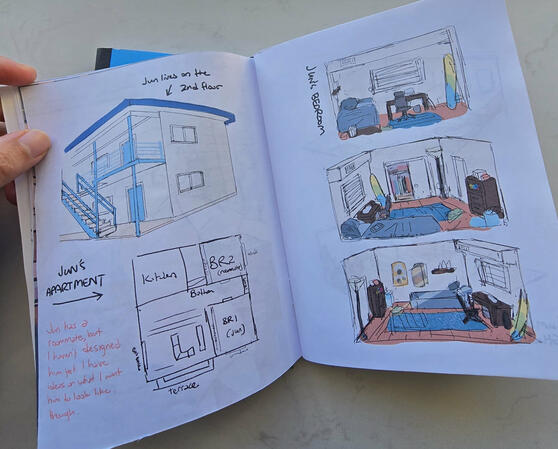 Jun lives on the
2nd floor
JUN'S
APARTMENT
Jun has a
roommate, but
I haven't designed
him yet. I have
ideas on what I want
him to look like
though.
Kitchen
BR2
(roommate)
Bathrm
BR1
(Jun)
Terrace
JUN'S BEDROOM